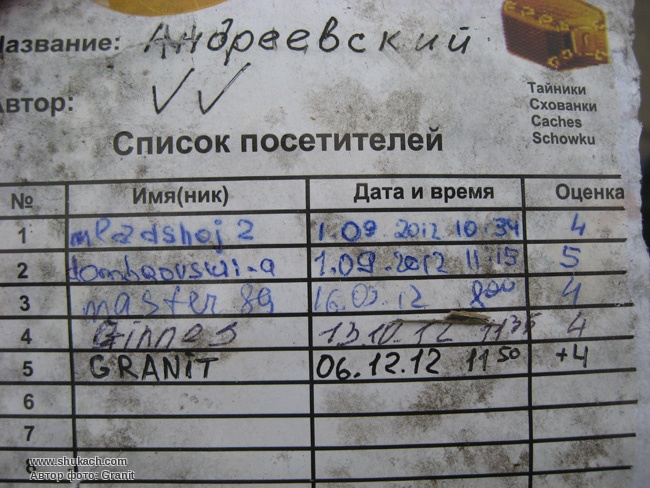 Название: Андреевский
Автор: VV
Тайники
Схованки
Caches
Schowku
Список посетителей
№ Имя(ник) Дата и время Оценка
1 mladshoj 2 1.09.2012 10:34 4
2 1.09.2012 11:15 5
3 master 89 12 8 00 4
4 Ginnes 13.10.12 11 35 4
5 GRANIT 06.12.12 11 50 +4
6
7
8
www.shukach.com
Автор фото: Granit